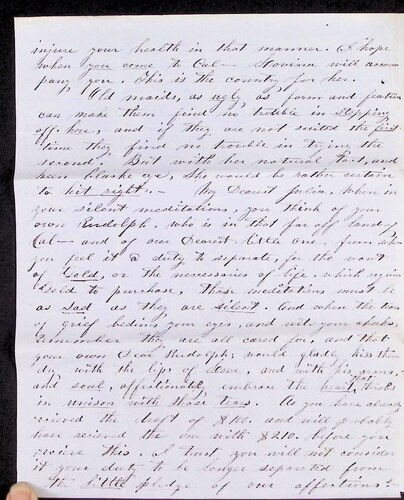 injure your health in that manner. I hope
when you come to Cal— Lovina will accom
pany you. This is the country for her.
Old maids, as ugly, as form and feature
can make them find no trouble in stepping
off here, and if they are not suited the first
time they find no trouble in trying the
second. But with her natural and
keen eye, she would be rather certain
to hit right.— My Dearest Julia, when in
your silent meditations, you think of your
own Rudolph, who is in that far off land of
Cal— and of our Dearest little one, from whom
you feel it a duty to separate, for the want
of Gold, or the necessaries of life, which require
Gold to purchase, those meditations must be
as sad as they are silent. And when the tears
of grief bedims your eyes, and wet your cheeks,
remember they are all cared for, and that
your own Dear Rudolph, would gladly kiss them
dry with the lips of Love, and with his arms,
and soul, affectionately embrace the heart, that is
in unison with those tears. As you have already
recieved the draft of $100. and will probably
have recieved the one with $210. before you
recieve this. I trust, you will not consider
it your duty to be longer separated from
the little pledge of our affections.—